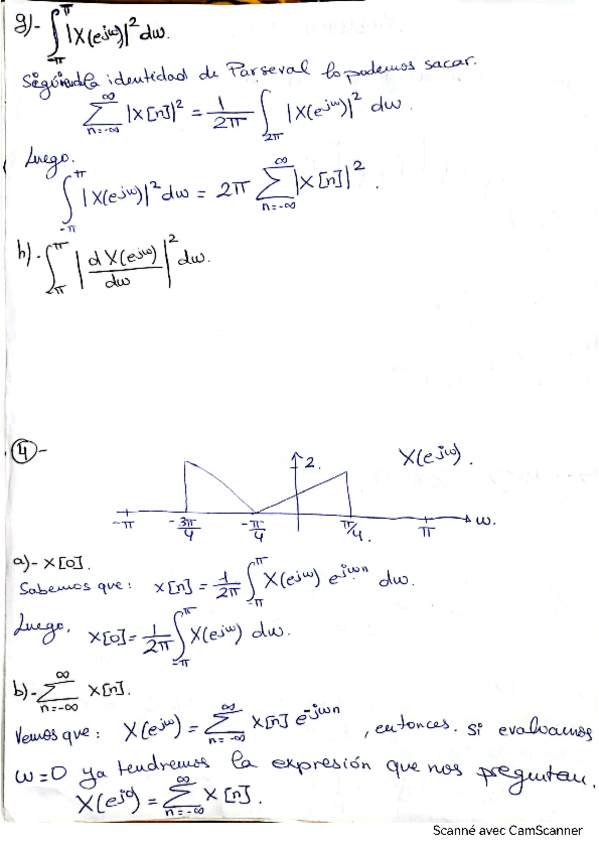 g)- ∫_{-π}^{π} |X(e^{jω})|² dω.
Siguiendo la identidad de Parseval lo podemos sacar.
∑_{n=-∞}^{∞} |x[n]|² = 1/2π ∫_{2π} |X(e^{jω})|² dω.
Luego.
∫_{-π}^{π} |X(e^{jω})|² dω = 2π ∑_{n=-∞}^{∞} |x[n]|².
h)- ∫_{-π}^{π} |dX(e^{jω})/dω|² dω.
④-
2. X(e^{jω}).
-π -3π/4 -π/4 π/4. π ω.
a)- x[0].
Sabemos que: x[n] = 1/2π ∫_{-π}^{π} X(e^{jω}) e^{jωn} dω.
Luego, x[0] = 1/2π ∫_{-π}^{π} X(e^{jω}) dω.
b)- ∑_{n=-∞}^{∞} x[n].
Vemos que: X(e^{jω}) = ∑_{n=-∞}^{∞} x[n] e^{-jωn}, entonces. si evaluamos
ω=0 ya tendremos la expresión que nos preguntan.
X(e^{j0}) = ∑_{n=-∞}^{∞} x[n].
Scanné avec CamScanner